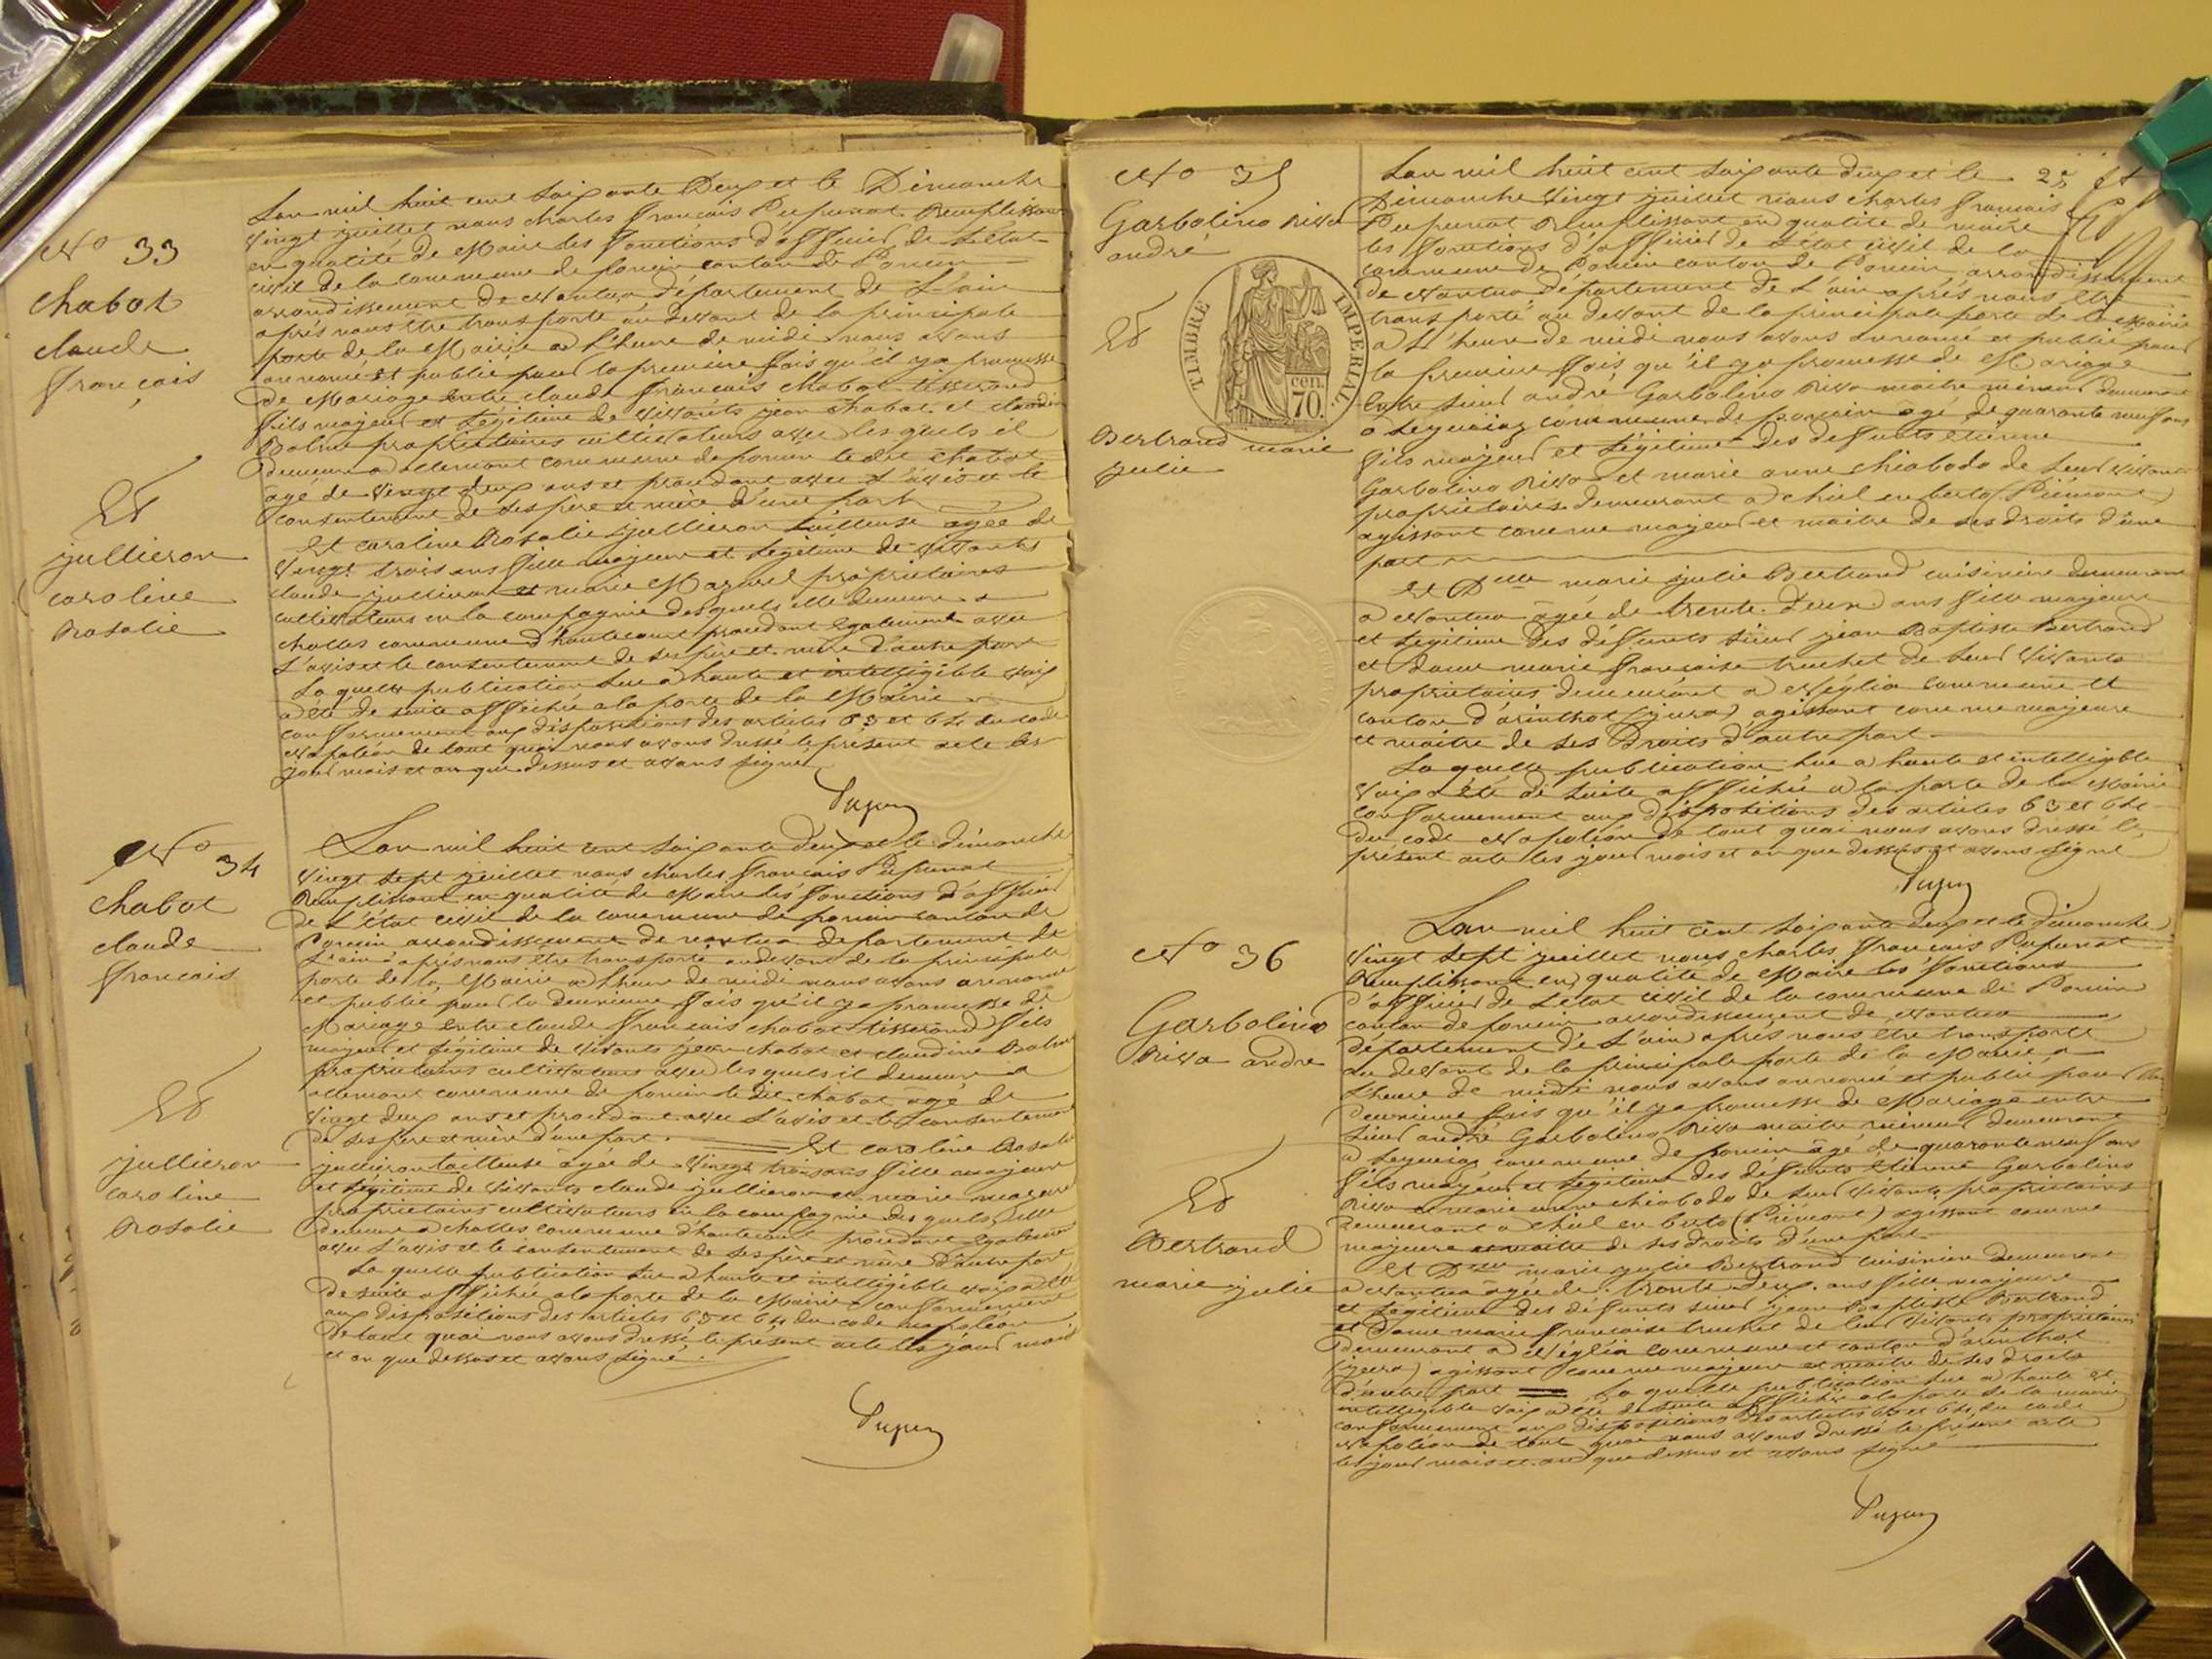 No 33
Chabot
claude
françois
Et
jullieron
caroline
Rosalie
Lan mil huit cent soixante Deux et le Dimanche
Vingt juillet nous charles françois Pupunat Remplissant
en qualité de Maire les fonctions d'officier de L'état
civil de la commune de poncin canton de Poncin
arrondissement de Nantua département de L'ain
après nous être transporté au devant de la principale
porte de la Mairie a L'heure de midi nous avons
annoncé et publié pour la première fois qu'il y a promesse
de Mariage entre claude françois chabot tisserand
fils majeur et légitime de vivants jean chabot et claudine
Balme propriétaires cultivateurs avec les quels il
demeure a allement commune de poncin le dit chabot
âgé de vingt deux ans et procédant avec L'avis et le
consentement de ses père et mère d'une part
Et caroline Rosalie jullieron tailleuse âgée de
Vingt trois ans fille majeure et légitime de vivants
claude jullieron et marie propriétaires
cultivateurs en la compagnie des quels elle demeure a
challes commune d'hautecourt procédant également avec
L'avis et le consentement de ses père et mère d'autre part
La quelle publication lue a haute et intelligible voix
a été de suite affichée a la porte de la Mairie
conformément aux dispositions des articles 63 et 64 du code
Napoléon de tout quoi nous avons dressé le présent acte les
jour mois et an que dessus et avons signé
Pupun
No 34
Chabot
claude
françois
Et
jullieron
caroline
Rosalie
Lan mil huit cent soixante Deux et le dimanche
Vingt sept juillet nous charles françois Pupunat
Remplissant en qualité de Maire les fonctions d'officier
de L'état civil de la commune de poncin canton de
Poncin arrondissement de nantua departement de
L'ain après nous être transporté au devant de la principale
porte de la Mairie a L'heure de midi nous avons annoncé
et publié pour la deuxième fois qu'il y a promesse de
Mariage entre claude françois chabot tisserand fils
majeur et légitime de vivants jean chabot et claudine Balme
propriétaires cultivateurs avec les quels il demeure a
allement commune de poncin le dit chabot âgé de
vingt deux ans et procédant avec L'avis et le consentement
de ses père et mère d'une part. Et caroline Rosalie
jullieron tailleuse âgée de vingt trois ans fille majeure
et légitime de vivants claude jullieron et marie
propriétaires cultivateurs en la compagnie des quels elle
demeure a challes commune d'hautecourt procédant également
avec L'avis et le consentement de ses père et mère d'autre part
La quelle publication lue a haute et intelligible voix a été
de suite affichée a la porte de la Mairie conformément
aux dispositions des articles 63 et 64 du code napoléon
de tout quoi nous avons dressé le présent acte les jour mois
et an que dessus et avons signé.
Pupun
No 35
Garbolino Riva
andré
Et
TIMBRE IMPERIAL.
cen.
70.
Bertrand marie
julie
Lan mil huit cent soixante deux et le
Dimanche Vingt juillet nous charles françois
Pupunat Remplissant en qualité de maire
les fonctions d'officier de L'état civil de la
commune de Poncin canton de Poncin, arrondissement
de Nantua département de L'ain après nous être
transporté au devant de la principale porte de la Mairie
a L'heure de midi nous avons annoncé et publié pour
la première fois qu'il y a promesse de Mariage
Entre sieur andré Garbolino Riva maitre mineur demeurant
a Leymiaz commune de poncin âgé de quarante neuf ans
fils majeur et légitime des défunts étienne
Garbolino Riva et marie anne chiabodo de leur vivant
propriétaires demeurant a chiel en berto (Piémont)
agissant comme majeur et maitre de ses droits d'une
part
Et Dlle marie julie Bertrand cuisinière demeurant
a Nantua âgée de trente deux ans fille majeure
et légitime des défunts sieur jean Baptiste Bertrand
et dame marie françoise truchet de leur vivants
propriétaires demeurant a Néglia commune et
canton d'arinthot (jura) agissant comme majeure
et maitre de ses Droits d'autre part
La quelle publication lue a haute et intelligible
voix a été de suite affichée a la porte de la Mairie
conformément aux dispositions des articles 63 et 64
du code Napoléon de tout quoi nous avons dressé le
présent acte les jour mois et an que dessus et avons signé
Pupun
No 36
Garbolino
Riva andre
Et
Bertrand
marie julie
Lan mil huit cent soixante deux et le dimanche
Vingt sept juillet nous charles françois Pupunat
Remplissant en qualité de Maire les fonctions
d'officier de L'état civil de la commune de Poncin
canton de poncin arrondissement de Nantua
département de L'ain après nous être transporté
au devant de la principale porte de la Mairie a
L'heure de midi nous avons annoncé et publié pour la
deuxième fois qu'il y a promesse de Mariage entre
sieur andré Garbolino Riva maitre mineur demeurant
a Leymiaz commune de poncin âgé de quarante neuf ans
fils majeur et légitime des défunts étienne Garbolino
Riva et marie anne chiabodo de leur vivants propriétaires
demeurant a chiel en berto (Piémont) agissant comme
majeure et maitre de ses droits d'une part
Et Dlle marie julie Bertrand cuisinière demeurant
a Nantua âgée de trente deux ans fille majeure
et légitime des défunts sieur jean Baptiste Bertrand
et Dame marie françoise truchet de leur vivants propriétaires
demeurant a Néglia commune et canton d'arinthot
(jura) agissant comme majeure et maitre de ses droits
d'autre part La quelle publication lue a haute et
intelligible voix a été de suite affichée a la porte de la mairie
conformément aux dispositions des articles 63 et 64 du code
Napoléon de tout quoi nous avons dressé le présent acte
les jour mois et an que dessus et avons signé
Pupun